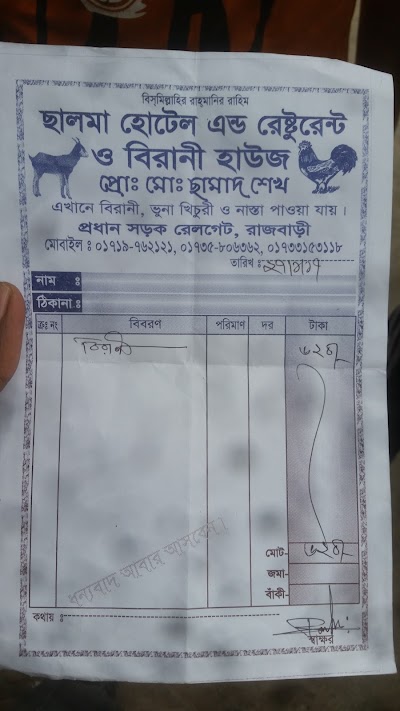 বিস্‌মিল্লাহির রাহ্‌মানির রাহিম
ছালমা হোটেল এন্ড রেষ্টুরেন্ট
ও বিরানী হাউজ
প্রোঃ মোঃ ছামাদ শেখ
এখানে বিরানী, ভুনা খিচুরী ও নাস্তা পাওয়া যায়।
প্রধান সড়ক রেলগেট, রাজবাড়ী
মোবাইল : ০১৭১৯-৭৬২১২১, ০১৭৩৫-৮০৬৩৬২, ০১৭৩৩১৫৩১১৮
তারিখ :
নাম :
ঠিকানা :
ক্রঃ নং বিবরণ পরিমাণ দর টাকা
মোট-
জমা-
বাঁকী-
ধন্যবাদ আবার আসবেন।
কথায় :
স্বাক্ষর